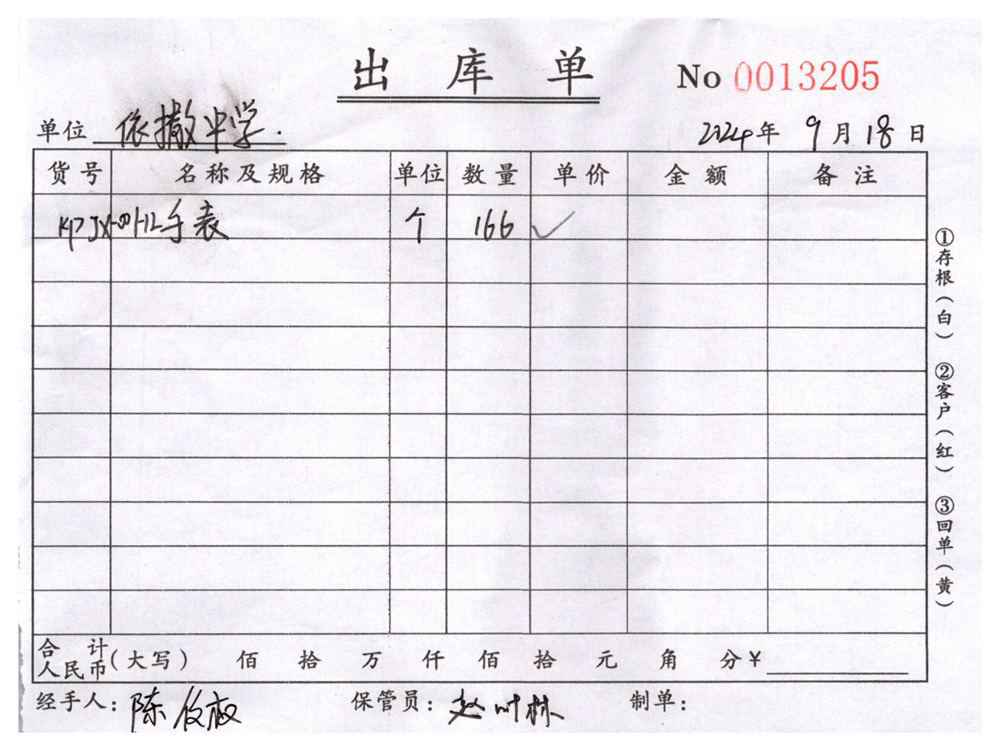 出库单
No 0013205
单位 依撒中学.
2024年 9月18日
货号 名称及规格 单位 数量 单价 金额 备注
手表 个 166 ✓
①存根(白) ②客户(红) ③回单(黄)
合计人民币(大写) 佰 拾 万 仟 佰 拾 元 角 分¥
经手人: 陈俊 保管员: 赵叶林 制单: